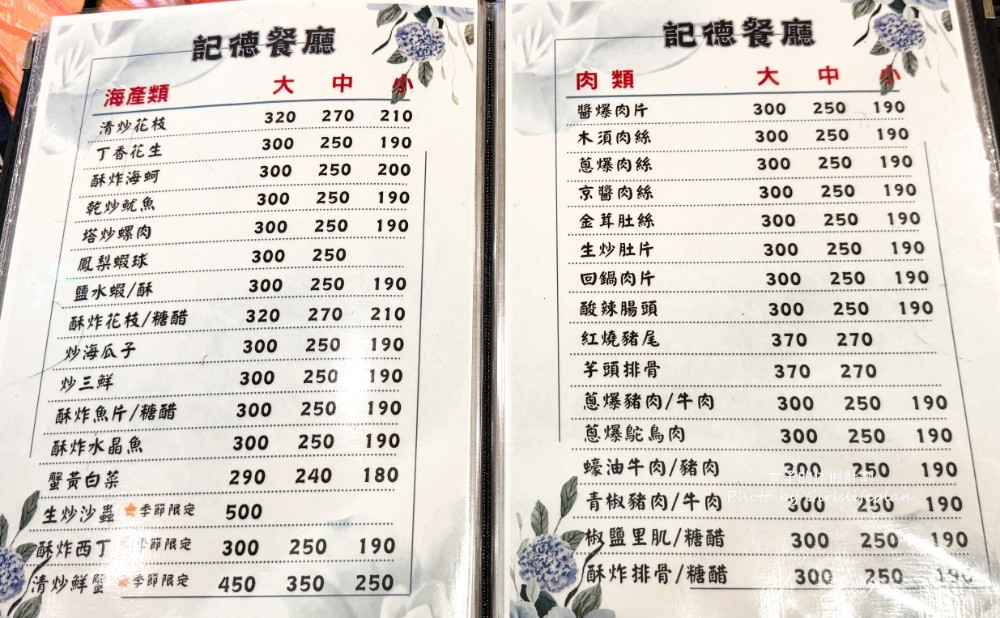 記德餐廳
海產類 大 中 小
清炒花枝 320 270 210
丁香花生 300 250 190
酥炸海蚵 300 250 200
乾炒魷魚 300 250 190
塔炒螺肉 300 250 190
鳳梨蝦球 300 250
鹽水蝦/酥 300 250 190
酥炸花枝/糖醋 320 270 210
炒海瓜子 300 250 190
炒三鮮 300 250 190
酥炸魚片/糖醋 300 250 190
酥炸水晶魚 300 250 190
蟹黃白菜 290 240 180
生炒沙蟲 季節限定 500
酥炸西丁 季節限定 300 250 190
清炒鮮蟹 季節限定 450 350 250
記德餐廳
肉類 大 中 小
醬爆肉片 300 250 190
木須肉絲 300 250 190
蔥爆肉絲 300 250 190
京醬肉絲 300 250 190
金茸肚絲 300 250 190
生炒肚片 300 250 190
回鍋肉片 300 250 190
酸辣腸頭 300 250 190
紅燒豬尾 370 270
芋頭排骨 370 270
蔥爆豬肉/牛肉 300 250 190
蔥爆鴕鳥肉 300 250 190
蠔油牛肉/豬肉 300 250 190
Photo by Girlslifeplan
青椒豬肉/牛肉 300 250 190
椒鹽里肌/糖醋 300 250 190
酥炸排骨/糖醋 300 250 190